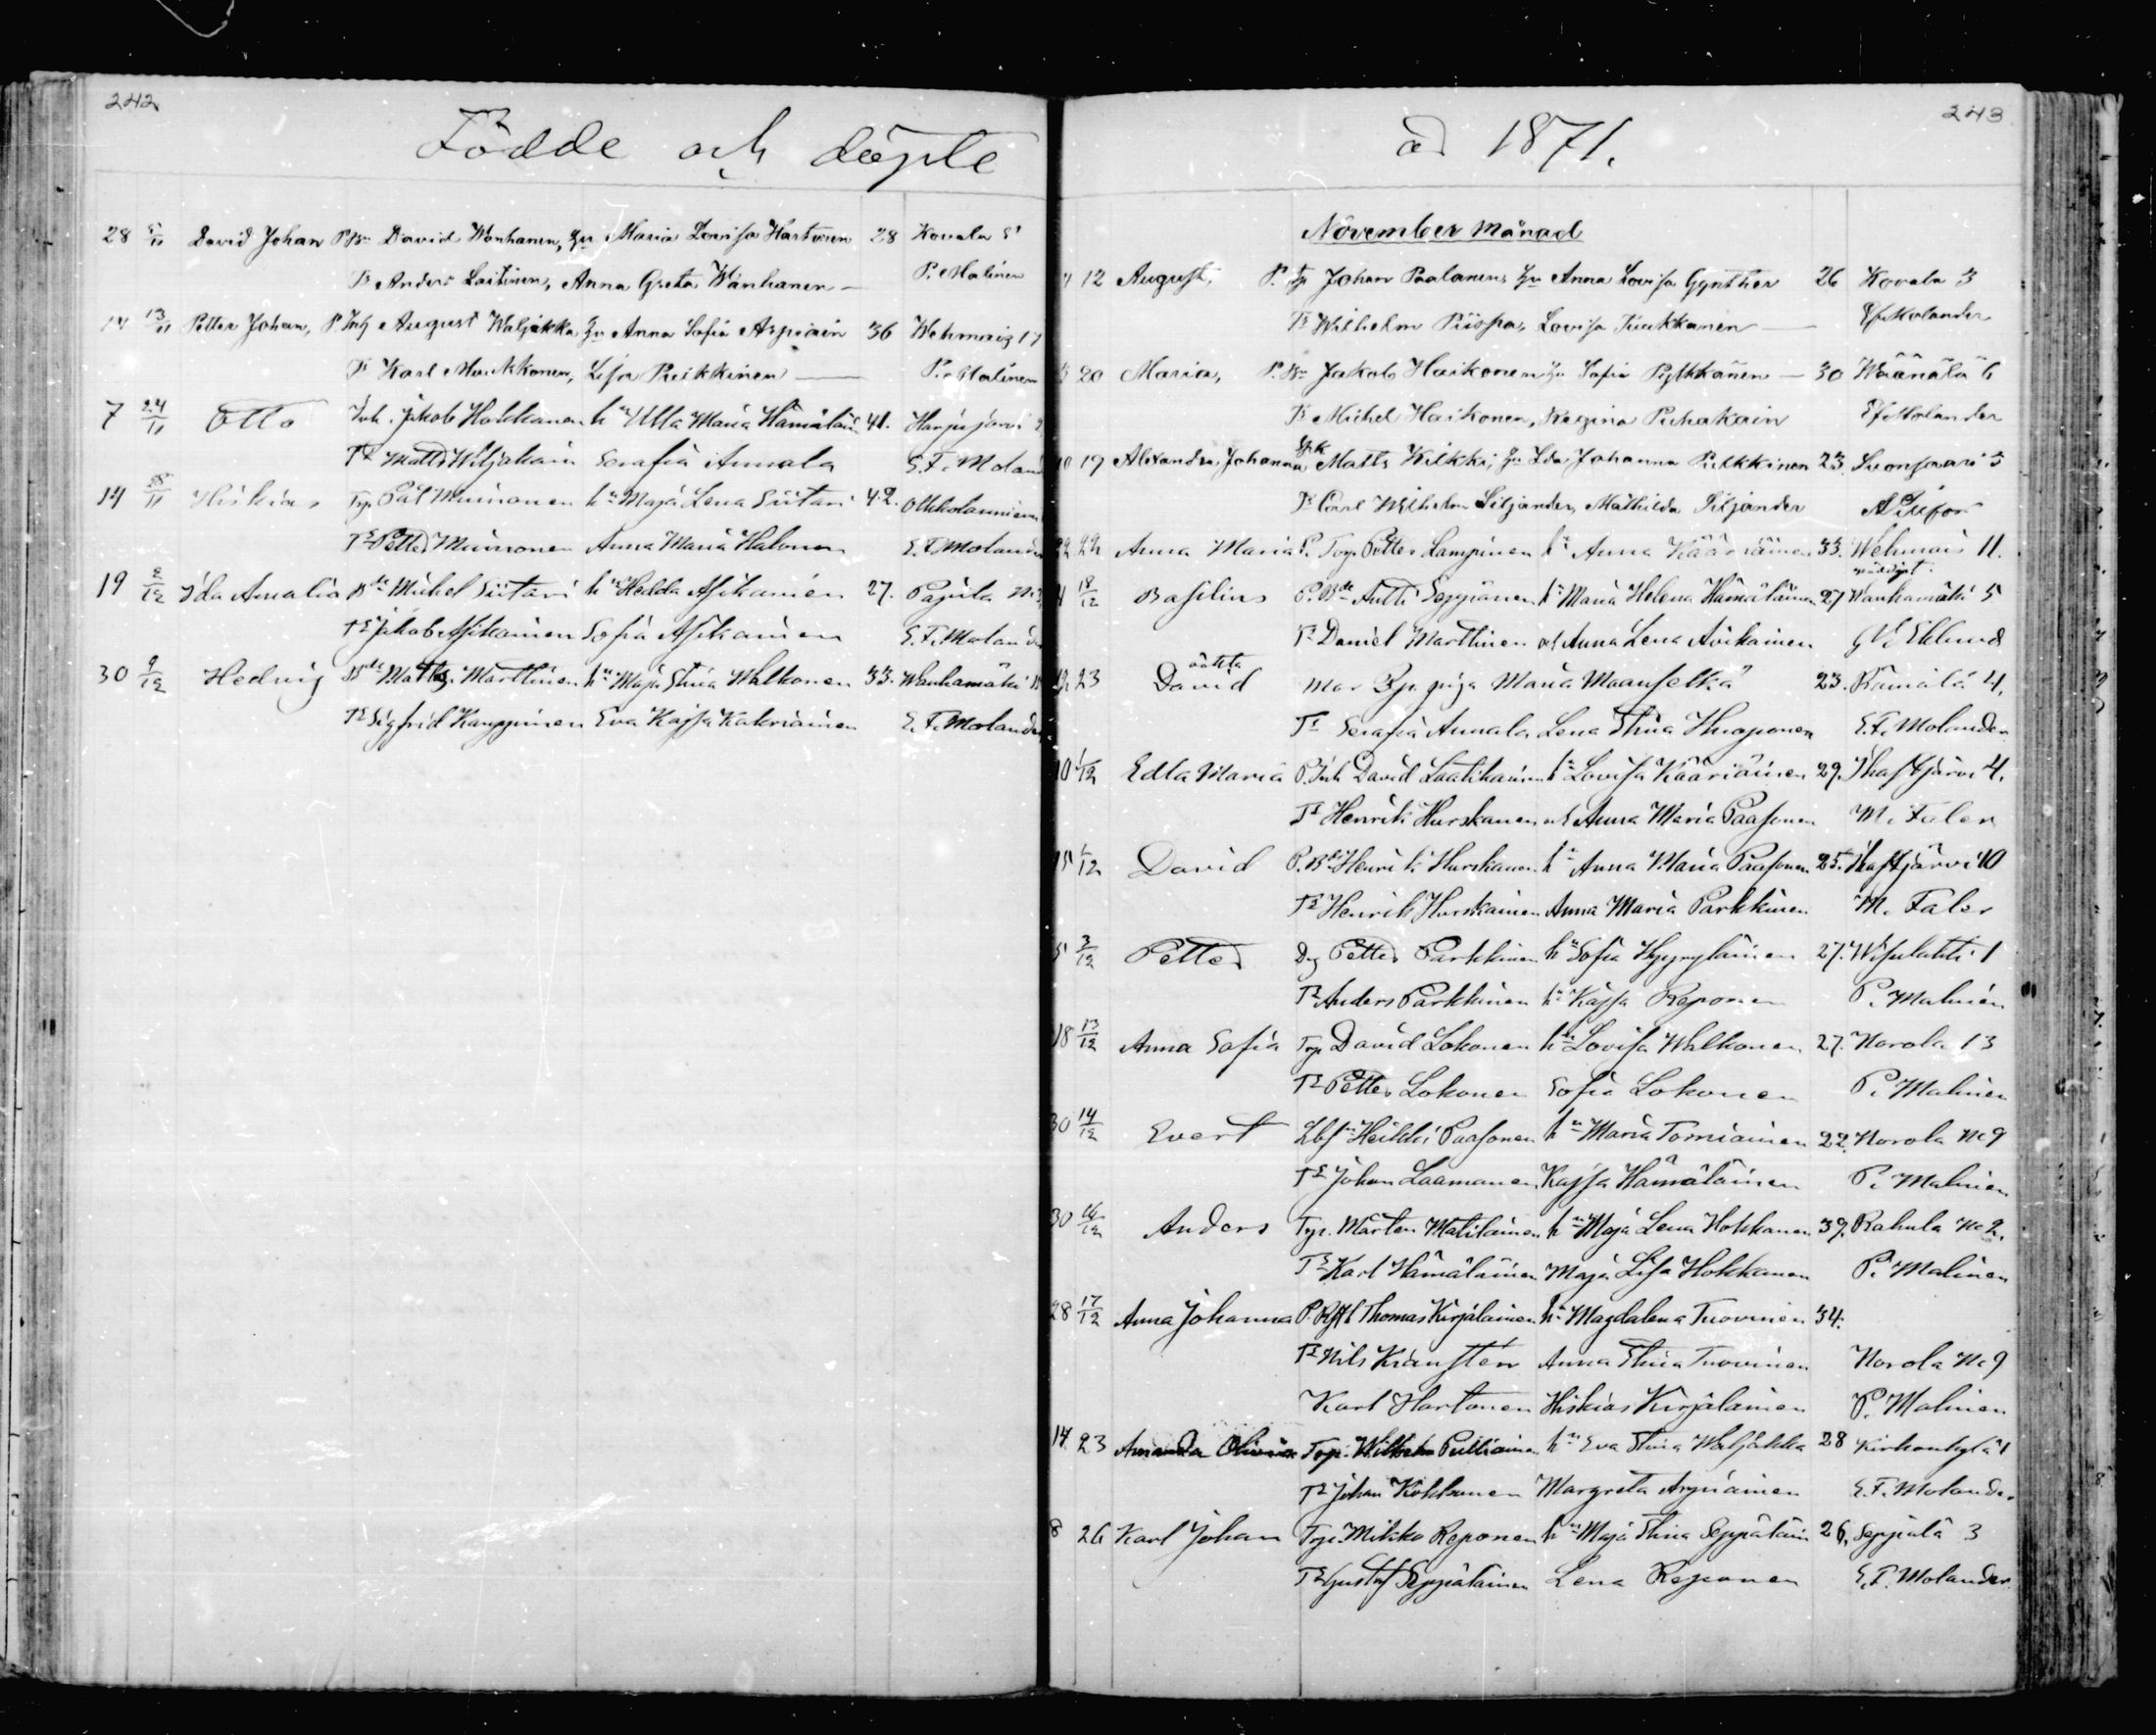 242
Födde och döpte
28 5/11 David Johan P. Bn David Wanhanen, Hu Maria Lovisa Hartonen 28 Kovala 5
Ts Anders Laitinen, Anna Greta Wanhanen — P. Malinen
14 13/11 Petter Johan, P. Inh August Waljakka Hu Anna Sofia Arpiain 36 Wehmais 17
Ts Karl Maukkonen, Lisa Pulkkinen — P. Malinen
7 24/11 Otto Inh. Jakob Hokkanen hn Ulla Maria Hämäläin 41. Harjujärvi 2
Ts Matts Wiljakain Serafia Annala E. F. Moland
14 /11 Hiskias Trp Pål Muinonen hn Maja Lena Siitari 42. Olkkolanniemi
Ts Petter Muinonen Anna Maria Halonen E. F. Molander
19 2/12 Ida Amalia Bde Michel Siitari hn Hedda Asikainen 27. Papula No 3
Ts Jakob Asikainen Sofia Asikainen E. F. Molander
30 9/12 Hedvig Bde Matts Marttinen hn Maja Stina Walkonen 33. Wanhamäki
Ts Sigfrid Kauppinen Eva Kajsa Kakriainen E. F. Molander
243
år 1871.
November Månad
12 August, P. Trp Johan Paalanen, Hu Anna Lovisa Gynther 26 Kovala 3
Ts Wilhelm Piispa, Lovisa Tiukkanen — Ef Molander
20 Maria, P. Bn Jakob Haikonen Hu Sofia Pylkkänen — 30 Wäänälä 6
Ts Michel Haikonen, Regina Puhakain Ef Molander
10 19 Alexandra Johanna Matts Wilkki, Hu Ida Johanna Pulkkinen 23 Suonsaari 3
Ts Carl Wilhelm Siljander, Mathilda Siljander
22 22 Anna Maria P. Torp Petter Lampinen hn Anna Kääriäinen 33. Wehmais 11.
nöddöpt.
4 18/12 Basilius P. Bde Antti Seppänen hn Maria Helena Hämäläinen 27 Wanhamäki 5
Ts Daniel Marttinen o Anna Lena Avikainen G. V. Eklund
oäkta
12 23 David Maria Maanselkä 23. Rämälä 4.
Ts Serafia Annala Lena Stina Huoponen E. F. Molander
10 1/12 Edla Maria P. Inh David Laatikainen hn Lovisa Kääriäinen 29. Ihastjärvi 4.
Ts Henrik Hurskanen och Anna Maria Paasonen M. Faler
15 1/12 David P. Bde Henrik Hurskanen hn Anna Maria Paasonen 25. Ihastjärvi 10
Ts Henrik Hurskainen Anna Maria Parkkinen M. Faler
5 3/12 Petter Drg Petter Parkkinen hn Sofia Hyyryläinen 27. Wisulahti 1
Ts Anders Parkkinen hn Kajsa Reponen P. Malinen
18 13/12 Anna Sofia Trp David Lokonen hn Lovisa Walkonen 27. Norola 13
Ts Petter Lokonen Sofia Lokonen P. Malinen
30 14/12 Evert Heikki Paasonen hn Maria Torniainen 22. Norola No 9
Ts Johan Laamanen Kajsa Hämäläinen P. Malinen
30 16/12 Anders Trp. Mårten Matilainen hn Maja Lena Hokkanen 39. Rahula No 2.
Ts Karl Hämäläinen Maja Lisa Hokkanen P. Malinen
28 17/12 Anna Johanna P. Thomas Kirjalainen hn Magdalena Tuovinen 34.
Ts Nils Kransten Anna Stina Tuovinen Norola No 9
Karl Hartonen Hiskias Kirjalainen P. Malinen
14 23 Amanda Olivia Trp. Wilhelm Pulliainen hn Eva Stina Waljakka 28 Kirkonkylä 1
Ts Johan Kokkonen Margreta Arpiainen E. F. Molander
8 26 Karl Johan Trp. Mikko Reponen hn Maja Stina Seppäläin 26. Seppälä 3
Ts Gustaf Seppäläinen Lena Reponen E. F. Molander